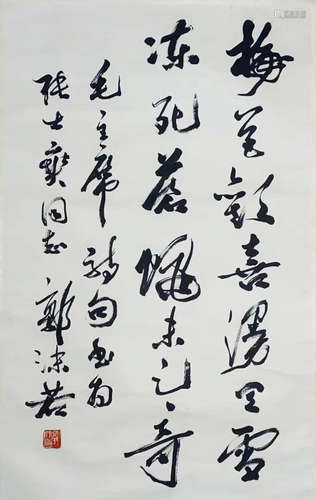 梅花欢喜漫天雪
冻死苍蝇未足奇
毛主席诗句书为
张士燮同志 郭沫若